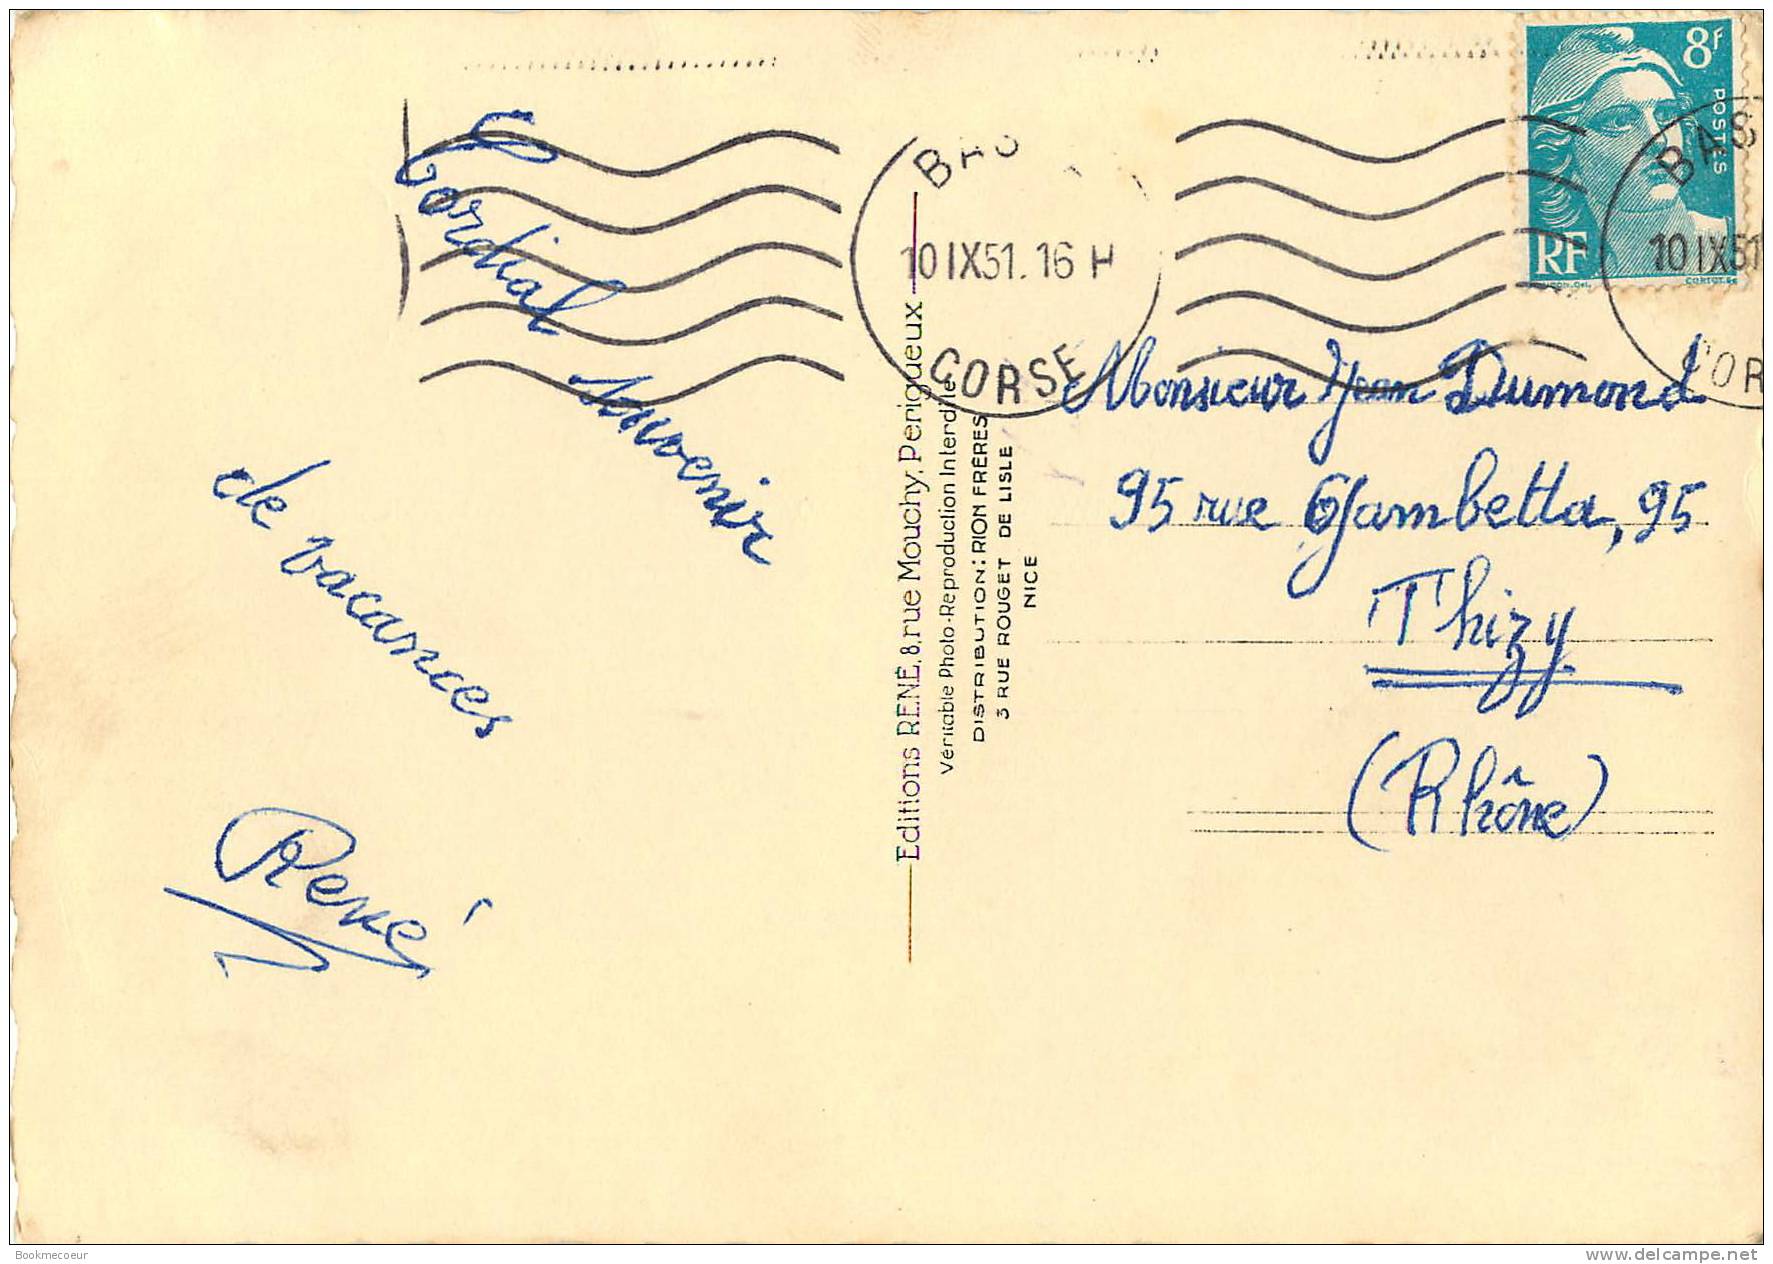 Cordial
souvenir
de vacances
René
Editions RENÉ, 8, rue Mouchy, Perigueux
Véritable Photo-Reproduction Interdite
DISTRIBUTION: RION FRÈRES
3 RUE ROUGET DE LISLE
NICE
8F
POSTES
RF
10 IX 51. 16 H
CORSE
BAS
10 IX 51
COR
Monsieur Jean Dumond
95 rue Gambetta, 95
Thizy
(Rhône)
Bookmecoeur
www.delcampe.net